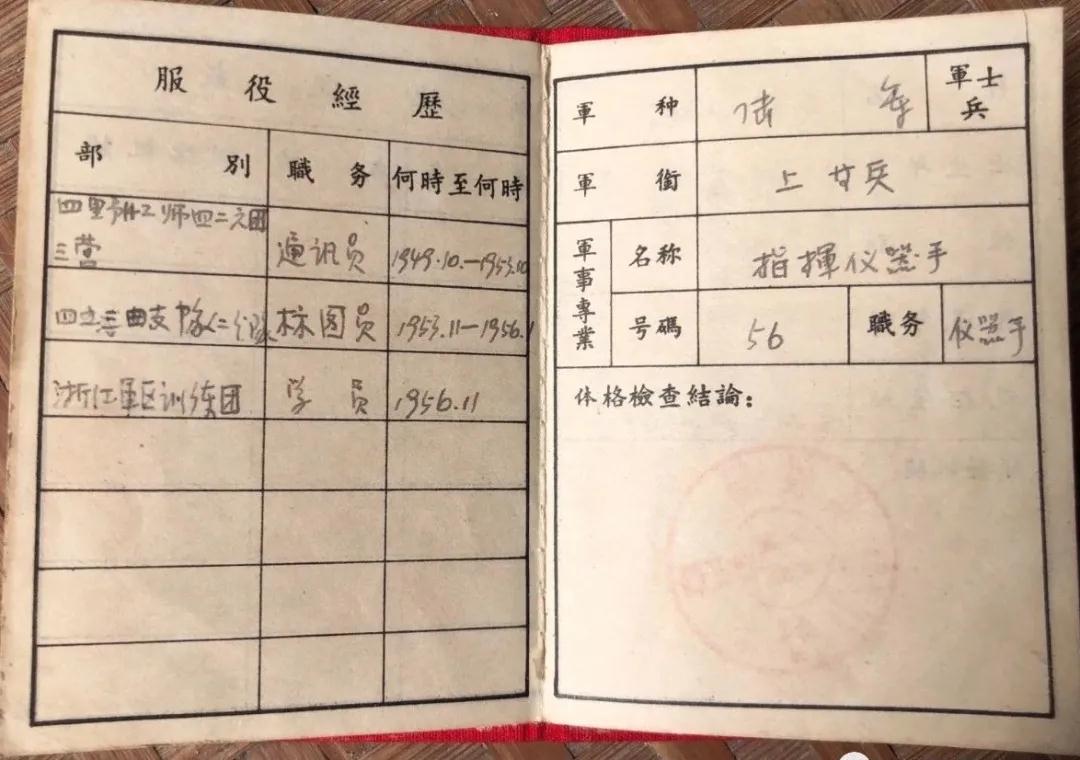 服役經歷
部別 職务 何時至何時
四野 师四二六团
三营 通讯员 1949.10.—1953.10
四 支隊 标图员 1953.11—1956.1
浙江軍区训练团 学員 1956.11
軍种 陆军 軍士兵
軍衔 上等兵
軍事專業 名称 指揮仪器手
号碼 56 職务 仪器手
体格檢查結論：